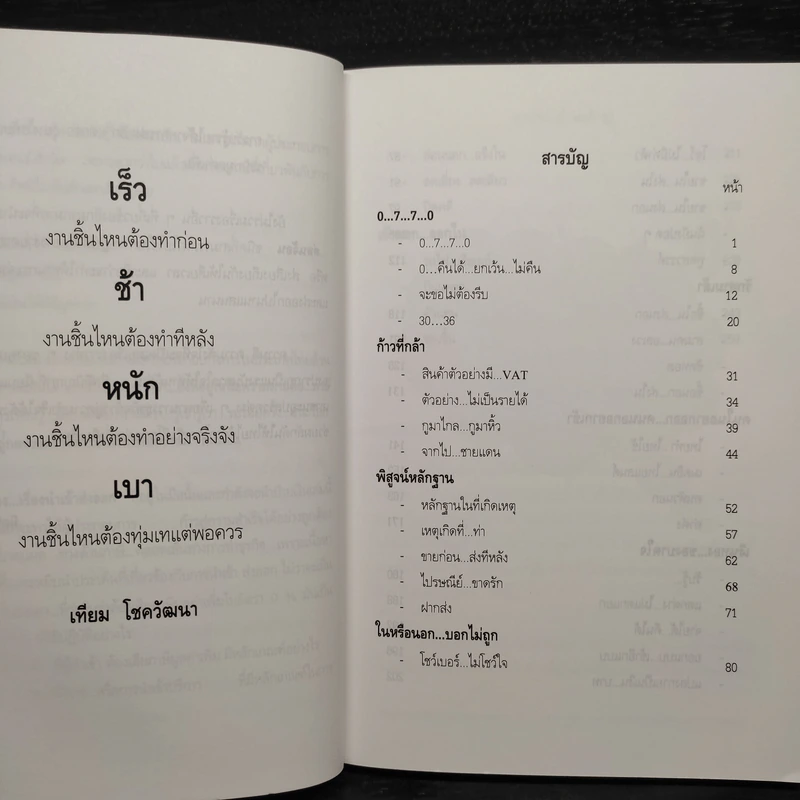 เร็ว
งานชิ้นไหนต้องทำก่อน
ช้า
งานชิ้นไหนต้องทำทีหลัง
หนัก
งานชิ้นไหนต้องทำอย่างจริงจัง
เบา
งานชิ้นไหนต้องทุ่มเทแต่พอควร
เทียม โชควัฒนา
สารบัญ
หน้า
0...7...7...0
- 0...7...7...0 1
- 0...คืนได้...ยกเว้น...ไม่คืน 8
- จะขอไม่ต้องรีบ 12
- 30...36 20
ก้าวที่กล้า
- สินค้าตัวอย่างมี...VAT 31
- ตัวอย่าง...ไม่เป็นรายได้ 34
- กูมาไกล...กูมาหิ้ว 39
- จากไป...ชายแดน 44
พิสูจน์หลักฐาน
- หลักฐานในที่เกิดเหตุ 52
- เหตุเกิดที่...ท่า 57
- ขายก่อน...ส่งทีหลัง 62
- ไปรษณีย์...ขาดรัก 68
- ฝากส่ง 71
ในหรือนอก...บอกไม่ถูก
- โชว์เบอร์...ไม่โชว์ใจ 80